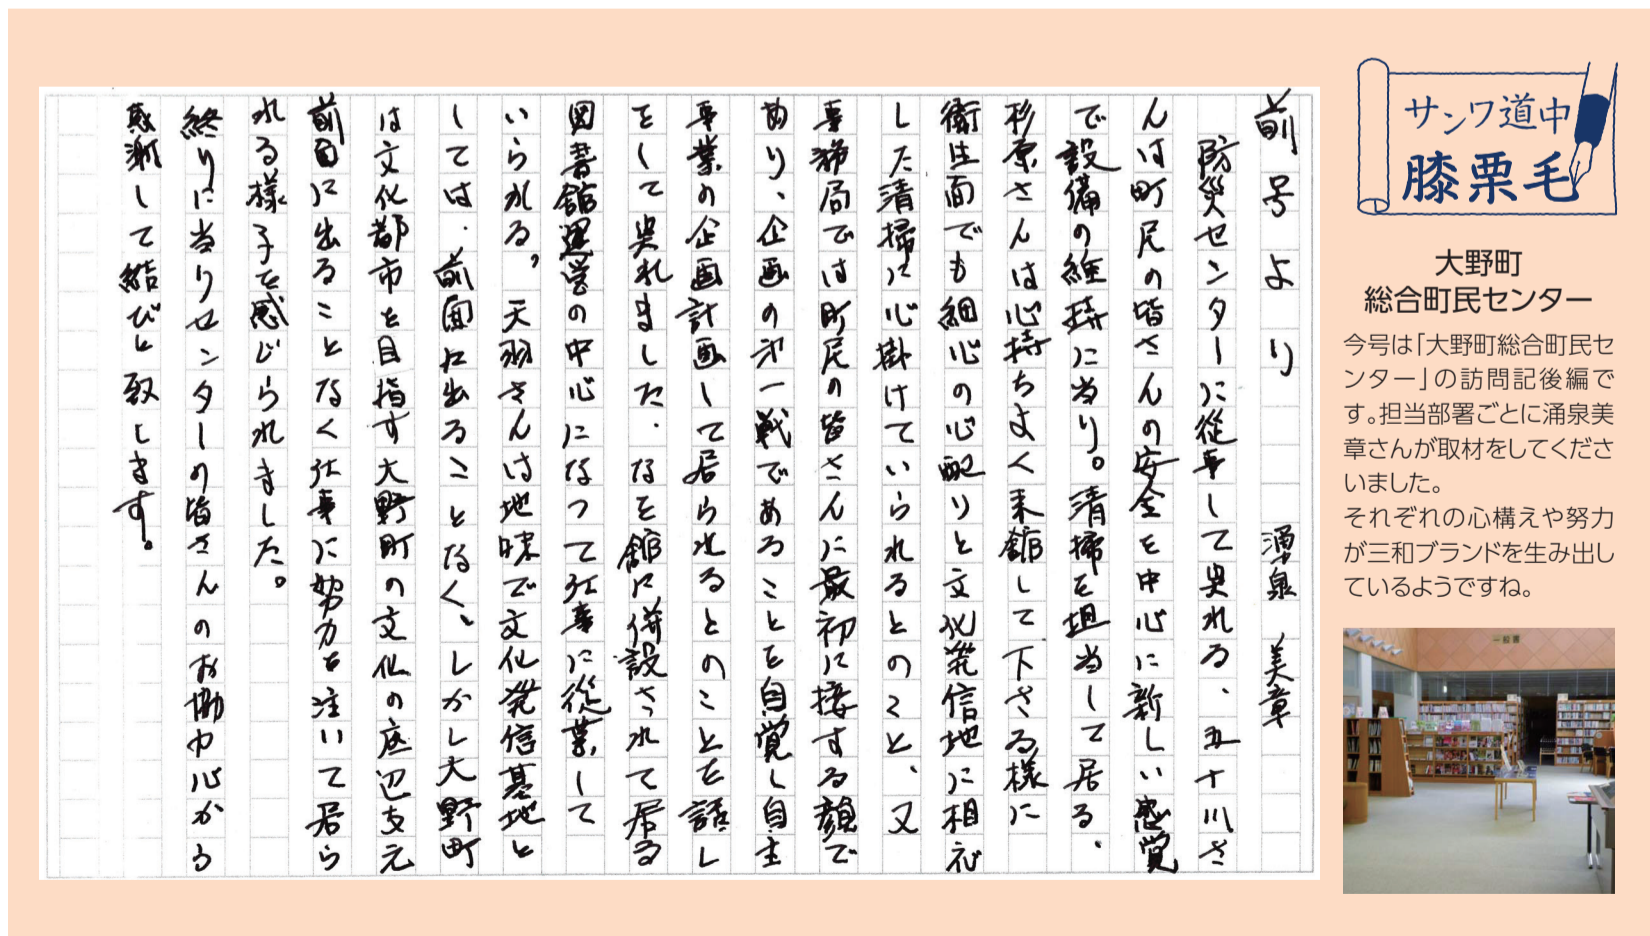 サンワ道中
膝栗毛
大野町
総合町民センター
今号は「大野町総合町民セ
ンター」の訪問記後編で
す。担当部署ごとに涌泉美
章さんが取材をしてくださ
いました。
それぞれの心構えや努力
が三和ブランドを生み出し
ているようですね。
一般書
前号より 湧泉 美章
防災センターに従事して呉れる、五十川さ
んは町民の皆さんの安全を中心に新しい感覚
で設備の維持に当り。清掃を担当して居る、
杉原さんは心持ちよく来館して下さる様に
衛生面でも細心の心配りと文化発信地に相応
した清掃に心掛けていられるとのこと、又
事務局では町民の皆さんに最初に接する顔で
あり、企画の第一戦であることを自覚し自主
事業の企画計画して居られるとのことを話し
をして呉れました、なを館に併設されて居る
図書館運営の中心になつて仕事に従業して
いられる。天羽さんは地味で文化発信基地と
しては、前面に出ることなく、しかし大野町
は文化都市を目指す大野町の文化の底辺支え
前面に出ることなく仕事に努力を注いて居ら
れる様子を感じられました。
終りに当りセンターの皆さんのお協力心から
感謝して結びと致します。